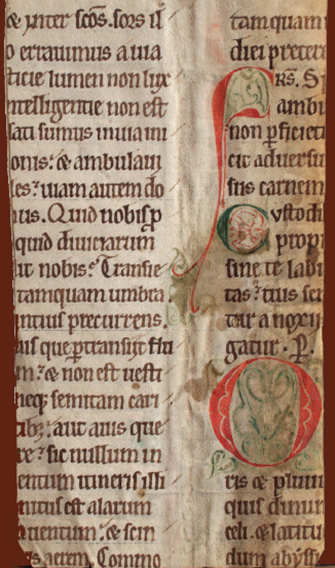 & inter scōs. sors il
o errauimus a uia
ticie lumen non lux
ntelligentie non est
sati sumus in uia ini
onis: & ambulaui
les: uiam autem do
uis. Quid nobis ꝓ
quid diuiciarum
it nobis: Transie
tamquam umbra
ntius precurrens.
uis que ꝑtransijt flu
m: & non est uesti
neqꝫ semitam cari
tibꝫ: aut auis que
re: sic nullum in
entum itineris illi
nitus est alarum
uentum: & scin
s aerem. Commo
tamquam
diei preter
RS. S
ambu
non ꝑficiet
cit aduersu
filꝰ carnem
Custodi
propi
sine te labi
tas: tuis se
tur a noxii
gatur. P.
O
ris & pluui
quis dinu
celi. & latitu
dum abyssi